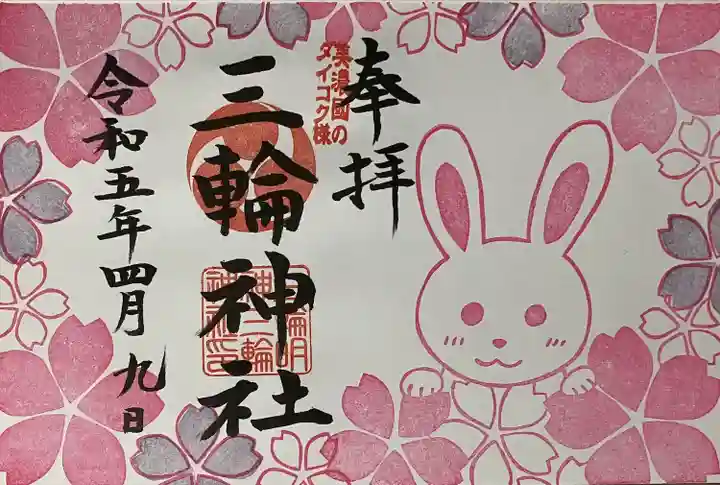 奉拝
美濃國の
ダイコク様
三輪神社
令和五年四月九日